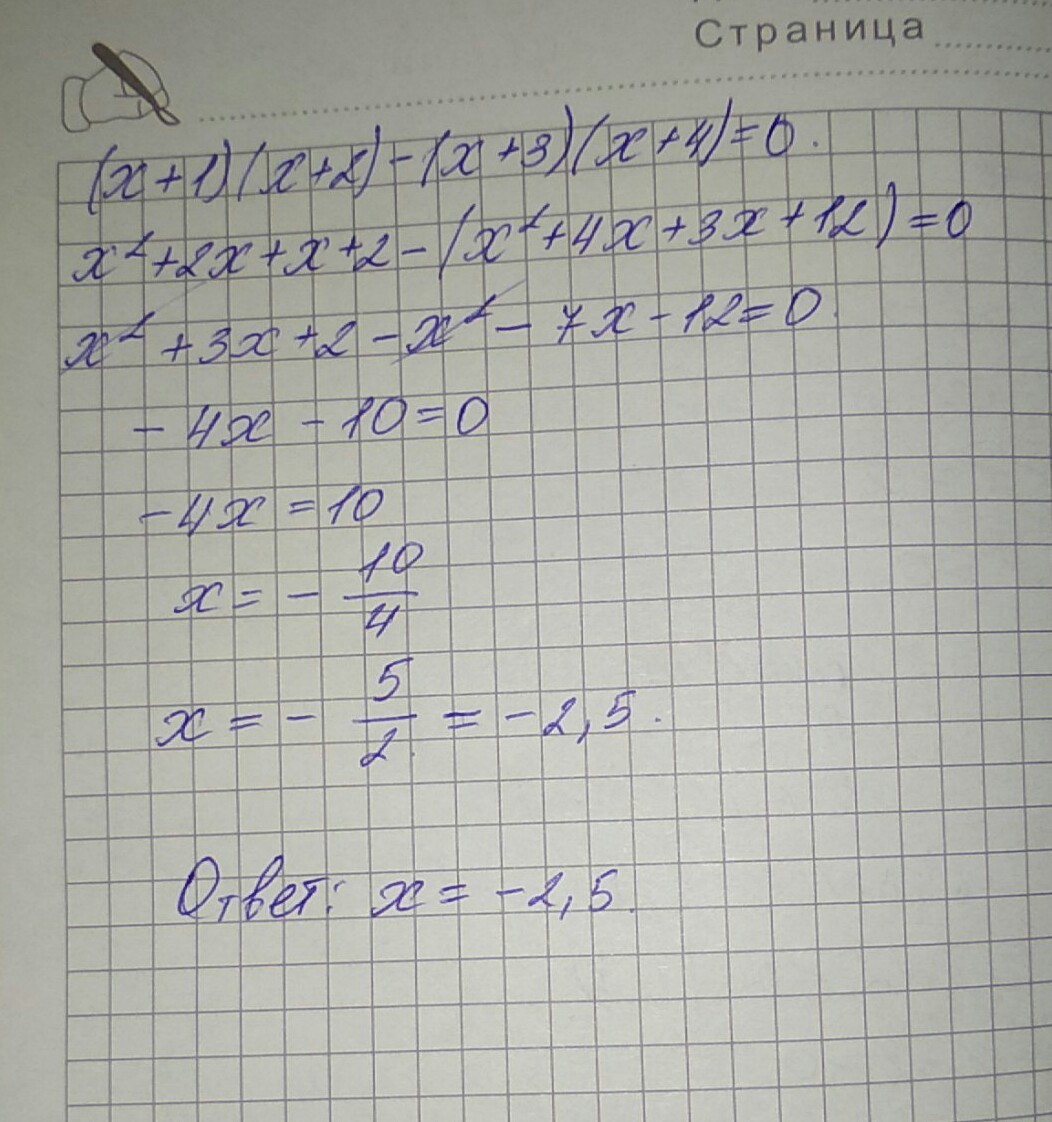 Страница
(x+1)(x+2)-(x+3)(x+4)=0.
x²+2x+x+2-(x²+4x+3x+12)=0
x²+3x+2-x²-7x-12=0
-4x-10=0
-4x=10
x=-10/4
x=-5/2=-2,5.
Ответ: x=-2,5.